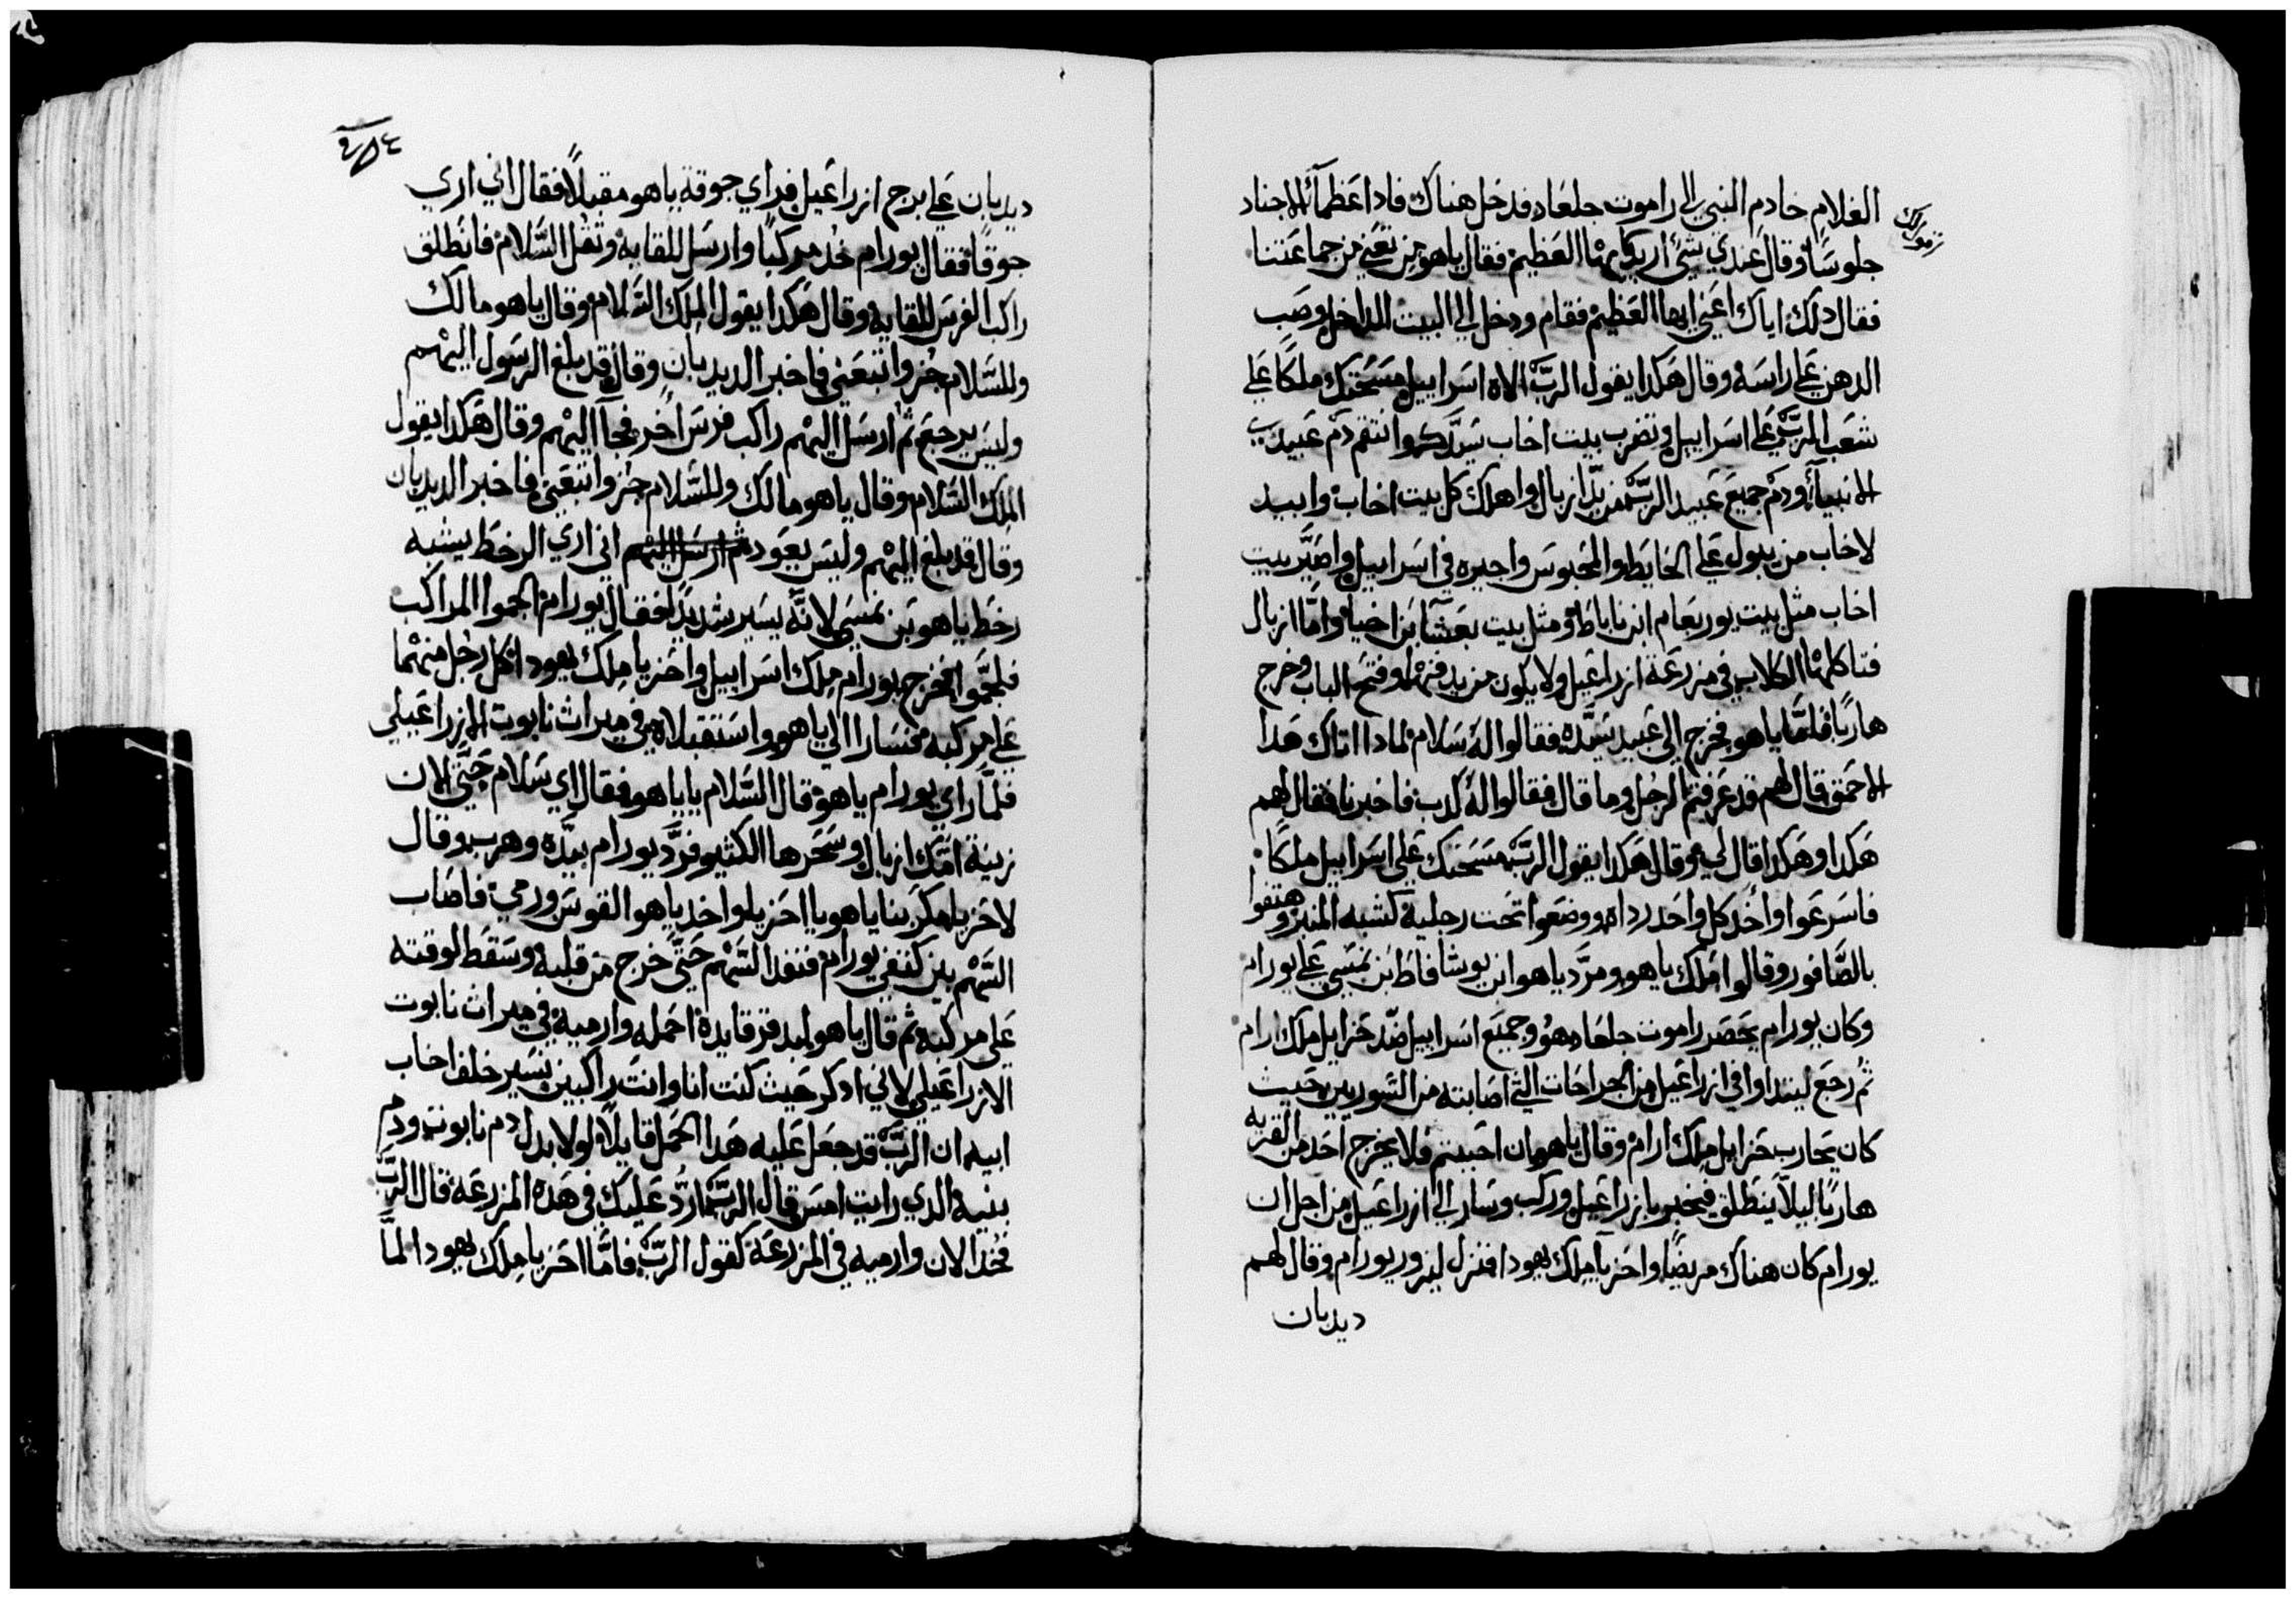 الغلام خادم النبي الي راموت جلعاد فدخل هناك فادا عظمآء الاجناد
جلوسًا وقال عندي شئً اريدك ايها العظيم فقال ياهو من تعني من جماعتنا
فقال دلك اياك اعني ايها العظيم فقام ودخل الي البيت الداخل وصب
الدهن علي راسه وقال هكدا يقول الربّ الاه اسراييل مسحتك ملكًا علي
شعب الربّ علي اسراييل وتضرب بيت اخاب سيدك وانتقم دم عبيدي
الانبيآء ودم جميع عبيد الربّ من يد ازبال واهلك كل بيت اخاب وابيد
لاخاب من يبول علي الحايط والمحبوس واجيره في اسراييل واصيّر بيت
اخاب مثل بيت يوربعام ابن ناباط ومثل بيت بعشا بن اخيا وامّا ازبال
فتاكلها الكلاب في مزرعة ازراعيل ولا يكون من يدفنها وفتح الباب وخرج
هاربًا فلمّا ياهو فخرج الي عبيد سيّده فقالوا له سلام لمادا اتاك هدا
الاحمق قال لهم قد عرفتم الرجل وما قال فقالوا له كدب فاخبرنا فقال لهم
هكدا وهكدا قال لي وقال هكدا يقول الربّ مسحتك علي اسراييل ملكًا
فاسرعوا واخد كل واحد رداه ووضعوا تحت رجليه كشبه المنبر وهتفوا
بالصّافور وقالوا املك ياهو ومرّد ياهو ابن يوشافاط بن نمسي علي يورام
وكان يورام يحصر راموت جلعاد هو وجميع اسراييل ضدّ حزاييل ملك ارام
ثم رجع ليتداوا في ازراعيل من الجراحات التي اصابته من السوريين حيث
كان يحارب حزاييل ملك ارام وقال ياهو ان احببتم فلا يخرج احد من القريه
هاربًا ليلًا ينطلق فيخبر بازراعيل وركب وسار الي ازراعيل من اجل ان
يورام كان هناك مريضًا واحزيا ملك يهودا فنزل ليزور يورام وقال لهم
ديدبان
ديدبان علي برج ازراعيل فراي جوقة ياهو مقبلًا فقال اني اري
جوقًا فقال يورام خد مركبًا وارسل للقايه وتقل السّلام فانطلق
راكب الفرس للقايه وقال هكدا يقول الملك السّلام وقال ياهو مالك
وللسّلام جز واتبعني فاخبر الديدبان وقال قد بلغ الرسول اليهم
وليس يرجع ثم ارسل اليهم راكب فرس اخر فجآ اليهم وقال هكدا يقول
الملك السّلام وقال ياهو مالك وللسّلام جز واتبعني فاخبر الديدبان
وقال قد بلغ اليهم وليس يعود ثم ارسل اليهم اني اري الرخط يشبه
رخط ياهو بن نمسي لانّه يسير شديدًا فقال يورام الجموا المراكب
فلجّموا فخرج يورام ملك اسراييل واحزيا ملك يهودا كل رجل منهما
علي مركبه فسارا الي ياهو واستقبلاه في ميراث نابوت الازراعيلي
فلمّا راي يورام ياهو قال السّلام يا ياهو فقال اي سلام حتّي الان
زينة امّك ازبال وسحرها الكثير فردّ يورام بيدّه وهرب وقال
لاحزيا مكر بنا ياهو يا احزيا واخد ياهو القوس ورمي فاصاب
السّهم بين كتفي يورام فنفد السّهم حتّي خرج من قلبه وسقط لوقته
علي مركبه ثم قال ياهو لبدقر قايده احمله وارميه في ميراث نابوت
الازراعيلي لاني ادكر حيث كنت انا وانت راكبين نسير خلف اخاب
ابيه ان الربّ قد جعل عليه هدا الحمل قايلًا لولا بدل دم نابوت ودم
بنيه الدي رايت امس قال الربّ ارُدّ عليك في هده المزرعة قال الربّ
فخد الان وارميه في المزرعة كقول الربّ فامّا احزيا ملك يهودا لمّا